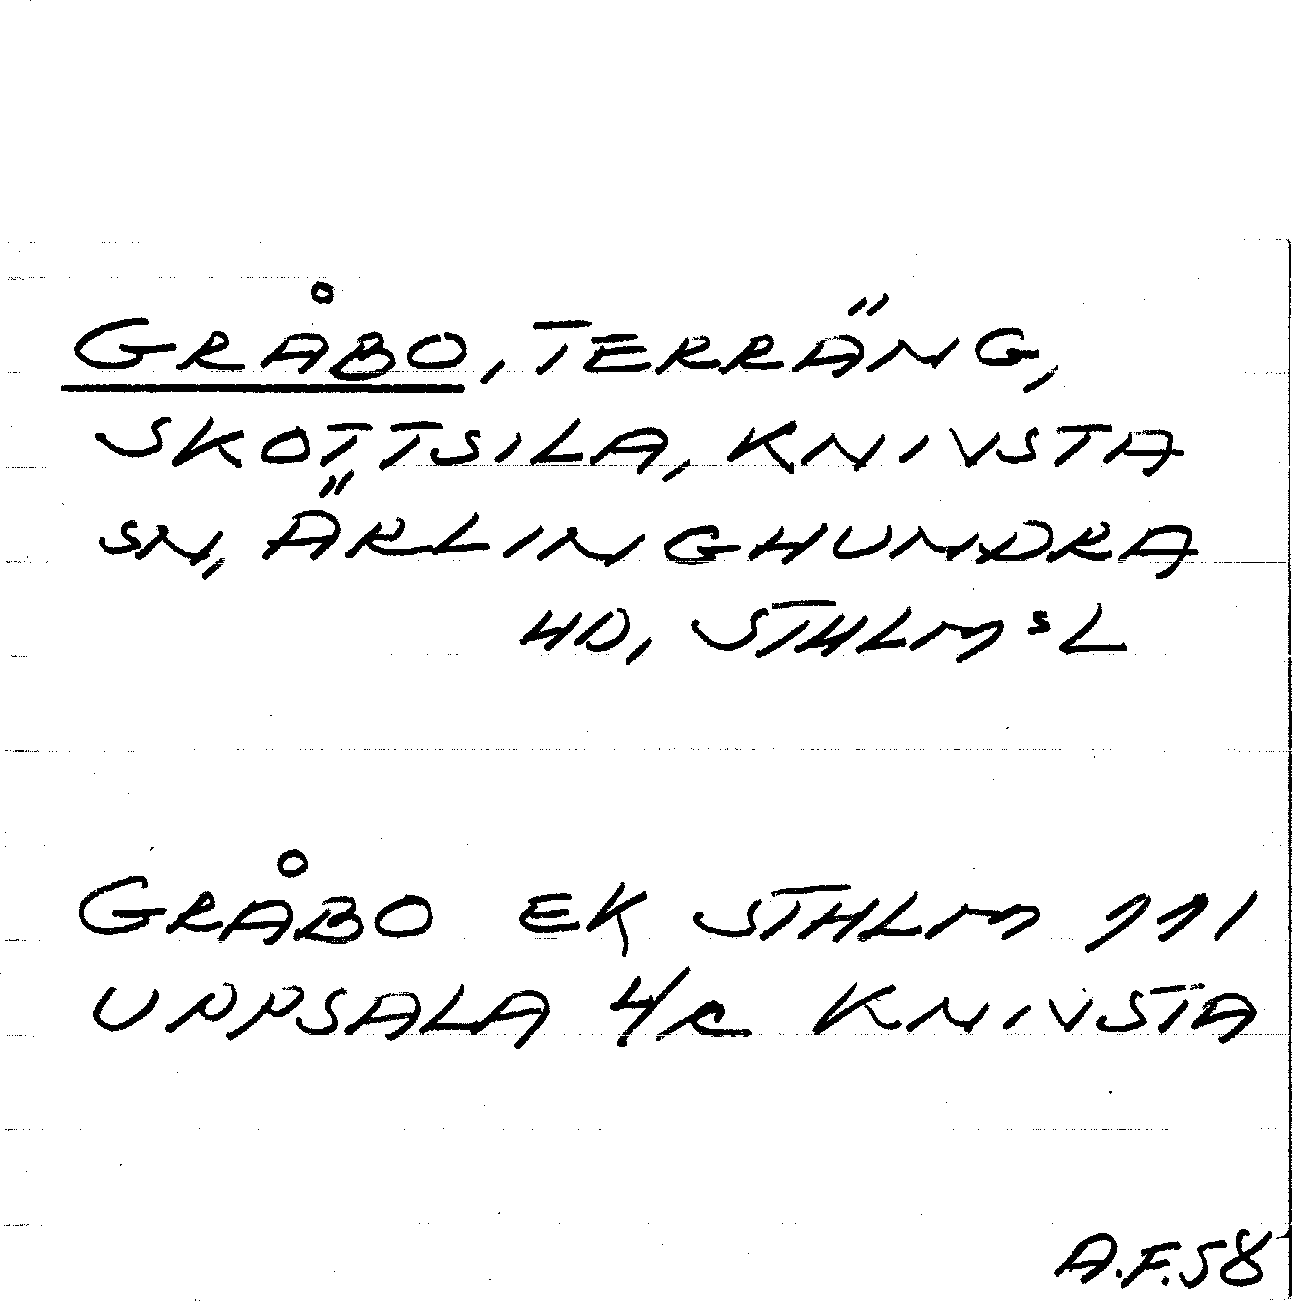 GRÅBO, TERRÄNG,
SKOTTSILA, KNIVSTA
SN, ÄRLINGHUNDRA
HD, STHLMˢL
GRÅBO EK STHLM 111
UPPSALA 4/c KNIVSTA
A.F.58